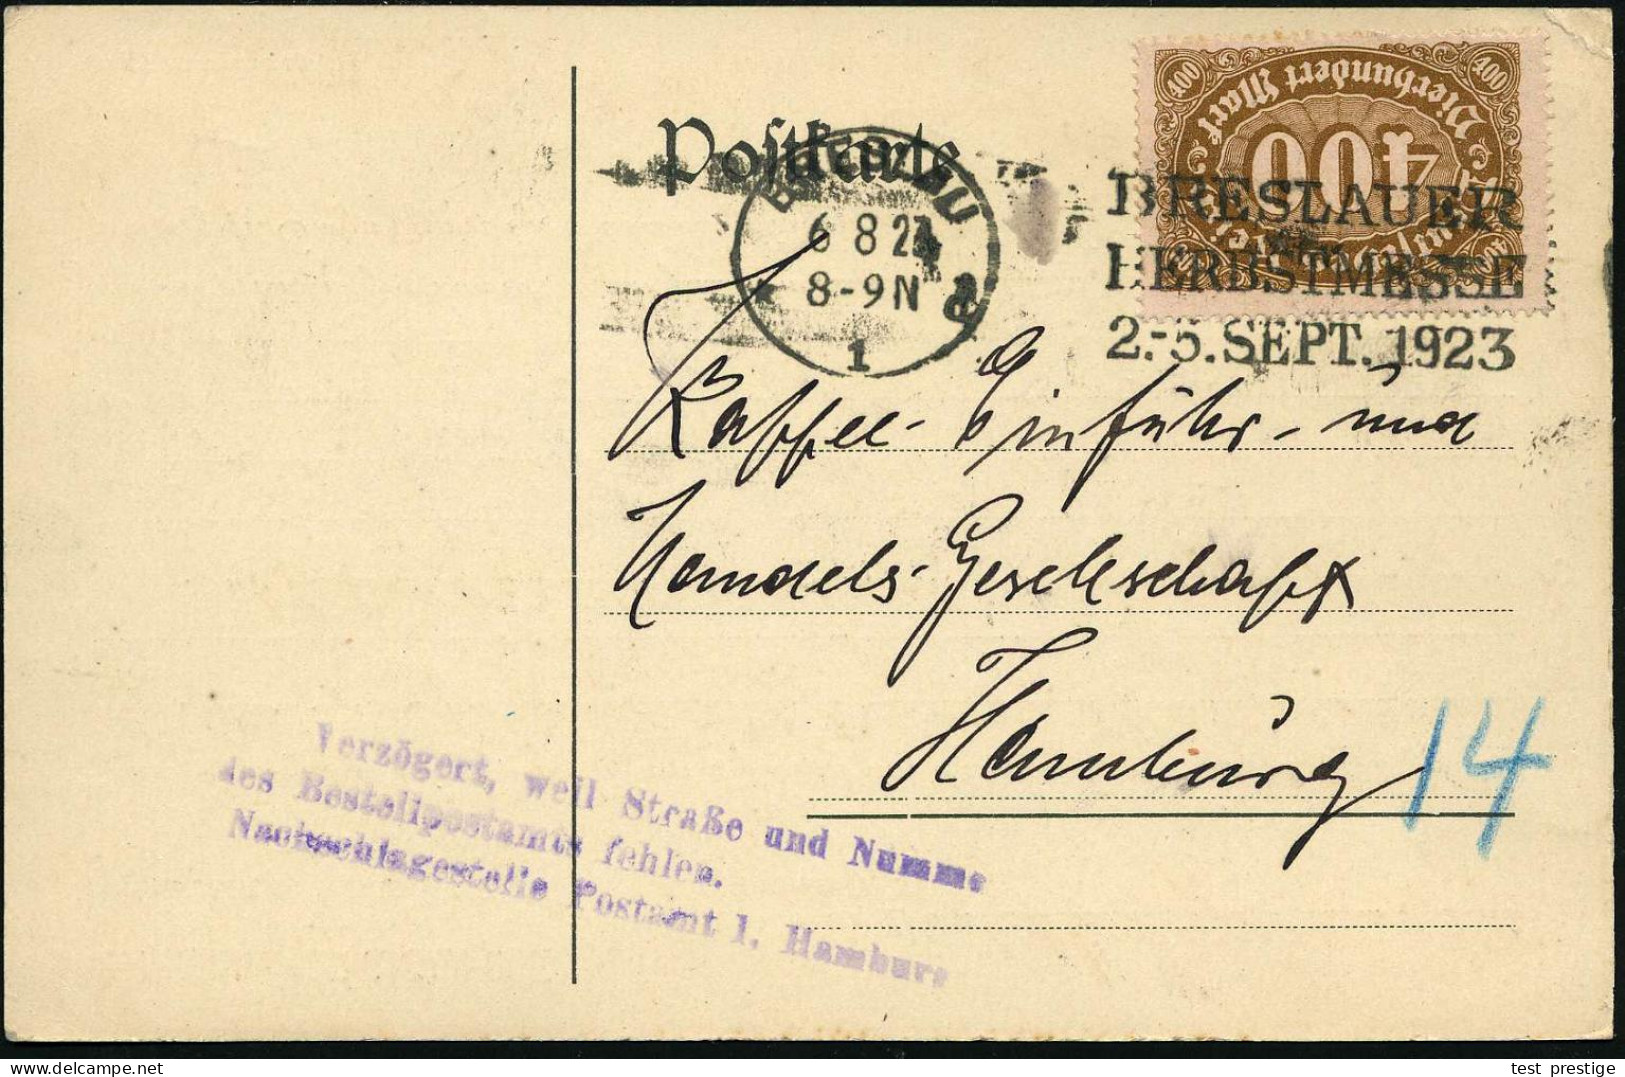 Postkarte
BRESLAU
6 8 23
8-9 N
1
400 Vierhundert Mark 400
400
Deutsches Reich
BRESLAUER
HERBSTMESSE
2.-5. SEPT. 1923
Kaffee-Einfuhr- und
Handels-Gesellschaft
Hamburg
14
Verzögert, weil Straße und Numme
des Bestellpostamts fehlen.
Nachschlagestelle Postamt 1. Hamburg
test prestige